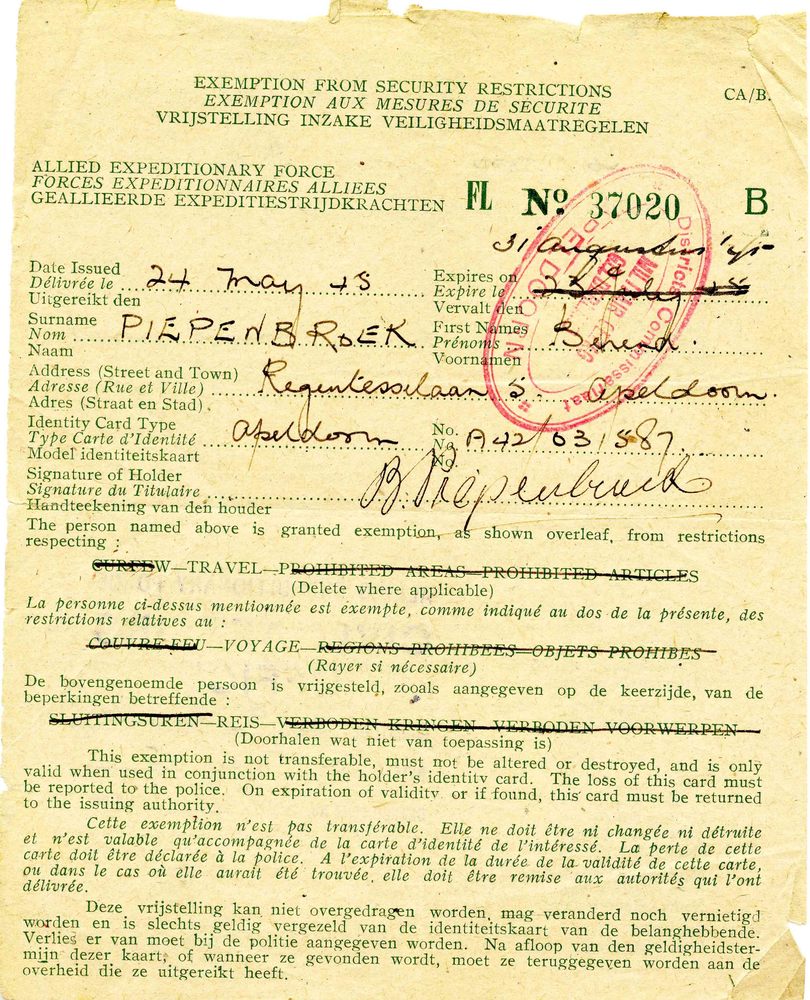 EXEMPTION FROM SECURITY RESTRICTIONS
CA/B.
EXEMPTION AUX MESURES DE SÉCURITE
VRIJSTELLING INZAKE VEILIGHEIDSMAATREGELEN
ALLIED EXPEDITIONARY FORCE
FORCES EXPEDITIONNAIRES ALLIEES
GEALLIEERDE EXPEDITIESTRIJDKRACHTEN
FL No 37020 B
31 Augustus '45
Date Issued
Délivrée le 24 May 45
Uitgereikt den
Expires on
Expire le
Vervalt den
Surname
Nom PIEPENBROEK
Naam
First Names
Prénoms Berend.
Voornamen
Address (Street and Town)
Adresse (Rue et Ville) Regentesselaan 5. Apeldoorn.
Adres (Straat en Stad)
Identity Card Type
Type Carte d'Identité Apeldoorn
Model identiteitskaart
No.
No A42/031587.
No.
Signature of Holder
Signature du Titulaire B. Piepenbroek
Handteekening van den houder
The person named above is granted exemption, as shown overleaf, from restrictions
respecting :
CURFEW—TRAVEL—PROHIBITED AREAS—PROHIBITED ARTICLES
(Delete where applicable)
La personne ci-dessus mentionnée est exempte, comme indiqué au dos de la présente, des
restrictions relatives au :
COUVRE-FEU—VOYAGE—REGIONS PROHIBEES—OBJETS PROHIBES
(Rayer si nécessaire)
De bovengenoemde persoon is vrijgesteld, zooals aangegeven op de keerzijde, van de
beperkingen betreffende :
SLUITINGSUREN—REIS—VERBODEN KRINGEN—VERBODEN VOORWERPEN
(Doorhalen wat niet van toepassing is)
This exemption is not transferable, must not be altered or destroyed, and is only
valid when used in conjunction with the holder's identity card. The loss of this card must
be reported to the police. On expiration of validity or if found, this card must be returned
to the issuing authority.
Cette exemption n'est pas transférable. Elle ne doit être ni changée ni détruite
et n'est valable qu'accompagnée de la carte d'identité de l'intéressé. La perte de cette
carte doit être déclarée à la police. A l'expiration de la durée de la validité de cette carte,
ou dans le cas où elle aurait été trouvée, elle doit être remise aux autorités qui l'ont
délivrée.
Deze vrijstelling kan niet overgedragen worden, mag veranderd noch vernietigd
worden en is slechts geldig vergezeld van de identiteitskaart van de belanghebbende.
Verlies er van moet bij de politie aangegeven worden. Na afloop van den geldigheidster-
mijn dezer kaart, of wanneer ze gevonden wordt, moet ze teruggegeven worden aan de
overheid die ze uitgereikt heeft.
District Commissariaat
MILITAIR GEZAG